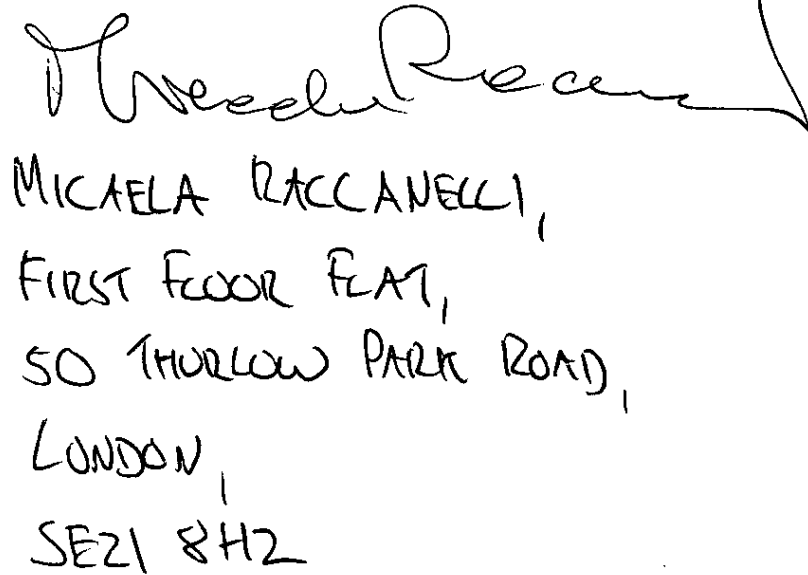 MICAELA RACCANELLI,
FIRST FLOOR FLAT,
50 THURLOW PARK ROAD,
LONDON,
SE21 8HZ